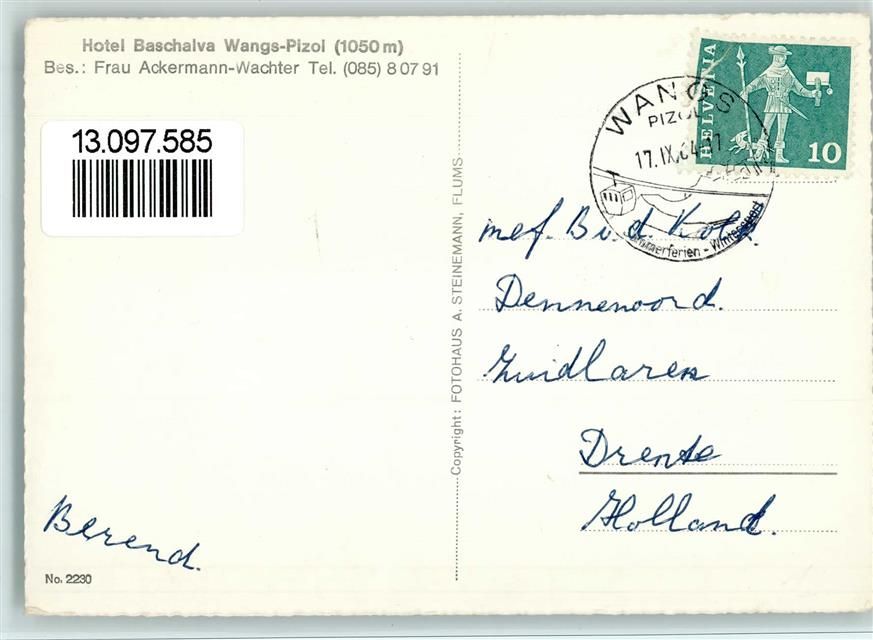 Hotel Baschalva Wangs-Pizol (1050 m)
Bes.: Frau Ackermann-Wachter Tel. (085) 8 07 91
13.097.585
Copyright: FOTOHAUS A. STEINEMANN, FLUMS
HELVETIA
10
WANGS
PIZOL
17.IX.64.-17
mmerferien - Wintersport
mef. B. v. d. Kolk.
Dennenoord.
Zuidlaren
Drente
Holland.
Berend.
No. 2230